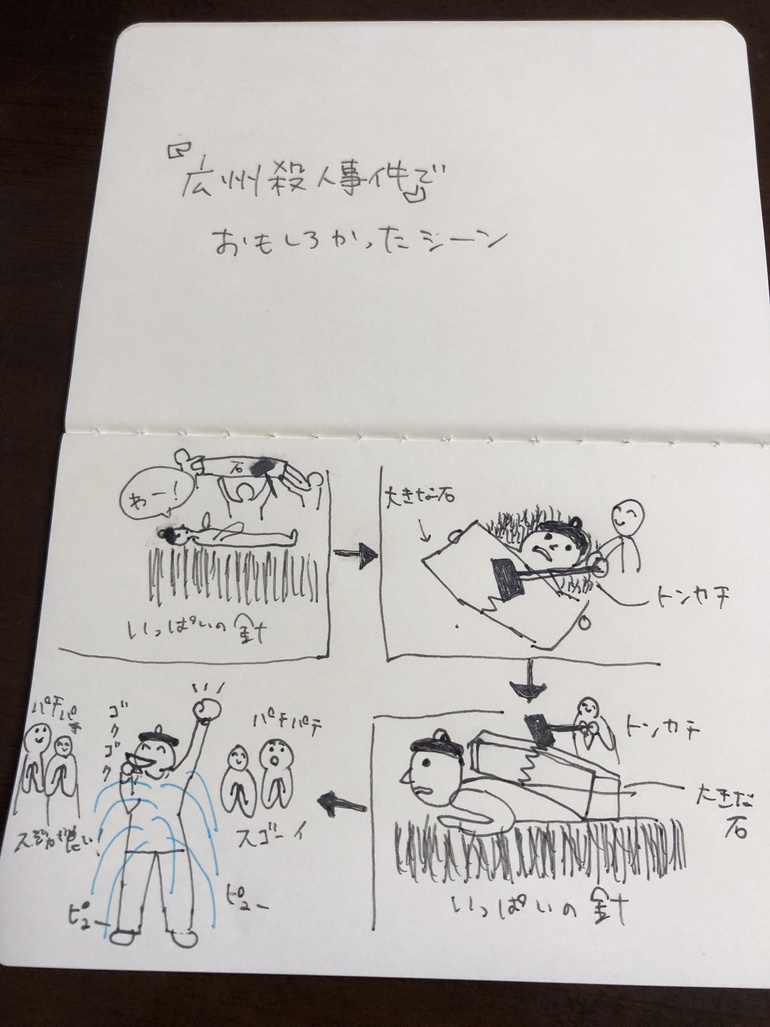 『広州殺人事件』で
おもしろかったシーン
わー!
石
いっぱいの針
大きな石
トンカチ
トンカチ
大きな
石
いっぱいの針
パチパチ
ゴクゴク
パチパチ
スゴーイ
ピュー
ピュー